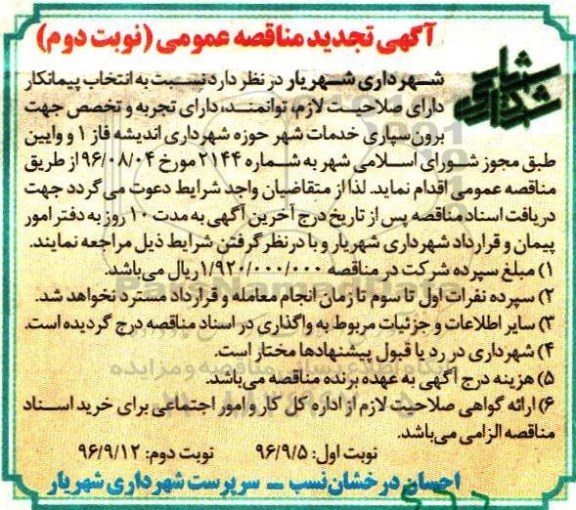 آگهی تجدید مناقصه عمومی (نوبت دوم)
شهرداری شهریار
شهرداری شهریار در نظر دارد نسبت به انتخاب پیمانکار
دارای صلاحیت لازم، توانمند، دارای تجربه و تخصص جهت
برون‌سپاری خدمات شهر حوزه شهرداری اندیشه فاز ۱ و وایین
طبق مجوز شورای اسلامی شهر به شماره ۲۱۴۴ مورخ ۹۶/۰۸/۰۴ از طریق
مناقصه عمومی اقدام نماید. لذا از متقاضیان واجد شرایط دعوت می گردد جهت
دریافت اسناد مناقصه پس از تاریخ درج آخرین آگهی به مدت ۱۰ روز به دفتر امور
پیمان و قرارداد شهرداری شهریار و با درنظر گرفتن شرایط ذیل مراجعه نمایند.
۱) مبلغ سپرده شرکت در مناقصه ۱/۹۲۰/۰۰۰/۰۰۰ ریال می‌باشد.
۲) سپرده نفرات اول تا سوم تا زمان انجام معامله و قرارداد مسترد نخواهد شد.
۳) سایر اطلاعات و جزئیات مربوط به واگذاری در اسناد مناقصه درج گردیده است.
۴) شهرداری در رد یا قبول پیشنهادها مختار است.
۵) هزینه درج آگهی به عهده برنده مناقصه می‌باشد.
۶) ارائه گواهی صلاحیت لازم از اداره کل کار و امور اجتماعی برای خرید اسناد
مناقصه الزامی می‌باشد.
نوبت اول: ۹۶/۹/۵ نوبت دوم: ۹۶/۹/۱۲
احسان درخشان‌نسب ـ سرپرست شهرداری شهریار